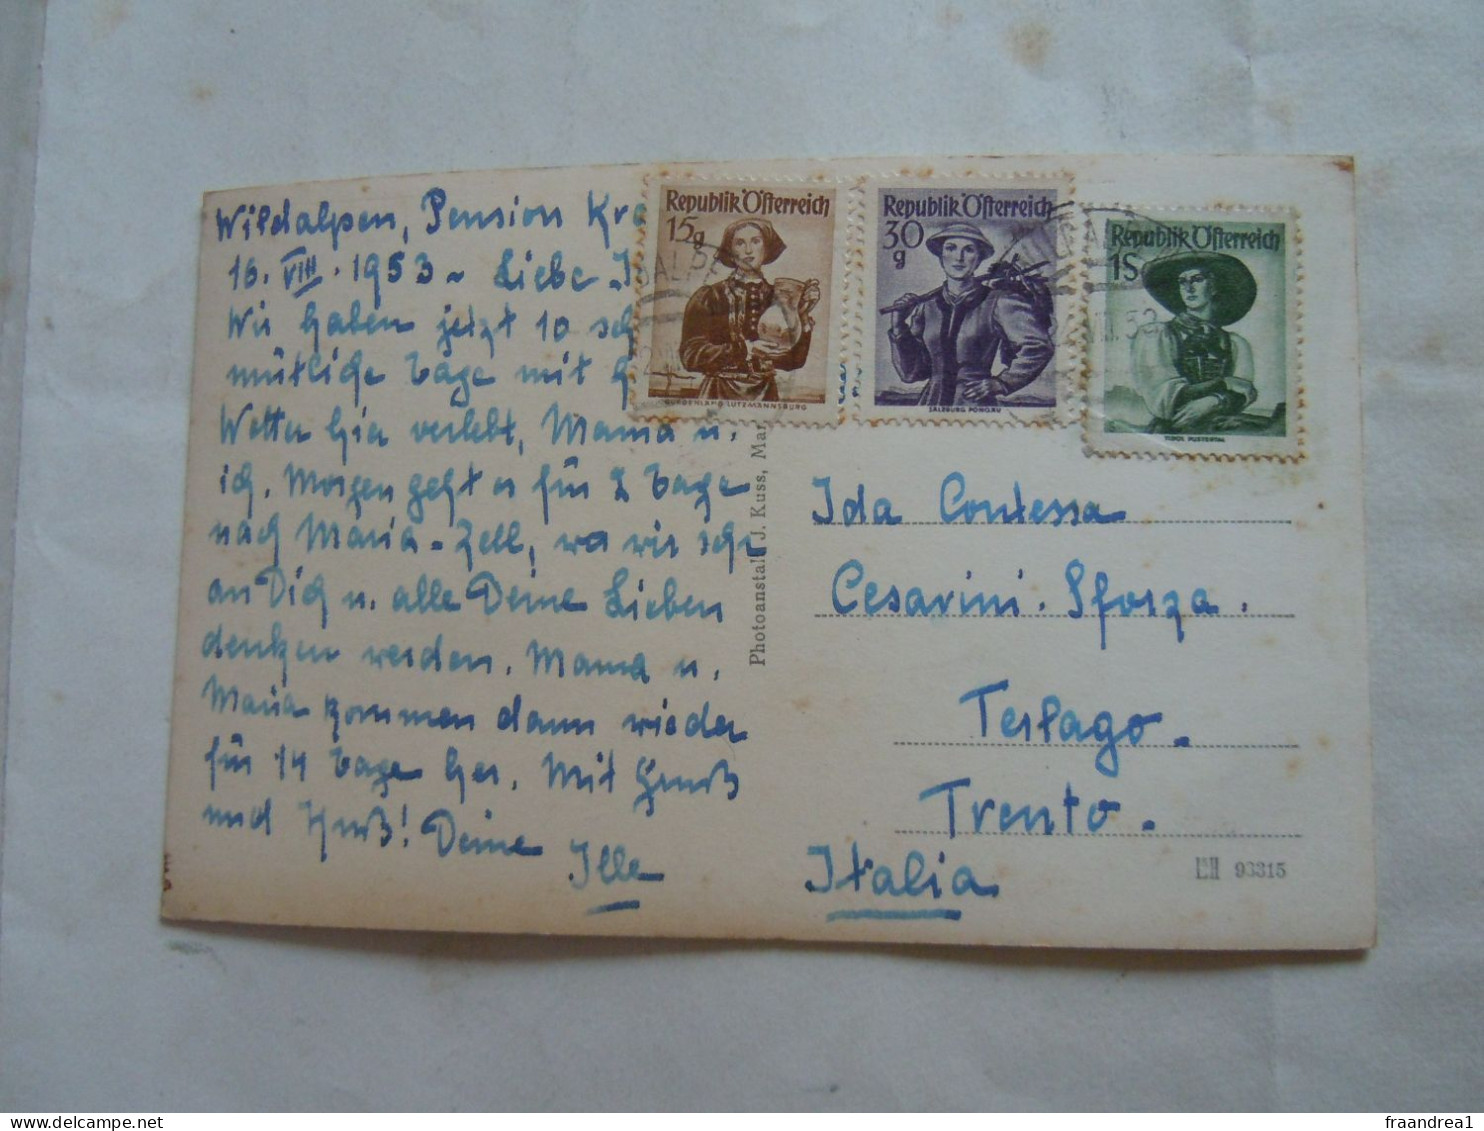 Wildalpen, Pension
16. VIII. 1953 ~ Liebe
Wir haben jetzt 10
mütliche Tage mit
Wetter hier verlebt, Mama u.
ich. Morgen geht es für 2 Tage
nach Maria-Zell, wo wir
an Dich u. alle Deine Lieben
denken werden. Mama u.
Maria kommen dann wieder
für 14 Tage her. Mit Gruß
und Kuß! Deine
Ille
Republik Österreich
15g
BURGENLAND LUTZMANNSBURG
Republik Österreich
30
g
SALZBURG PONGAU
Republik Österreich
1S
TIROL PUSTERTAL
Photoanstalt J. Kuss, Mar
Ida Contessa
Cesarini-Sforza.
Terlago.
Trento.
Italia
93315
fraandrea1